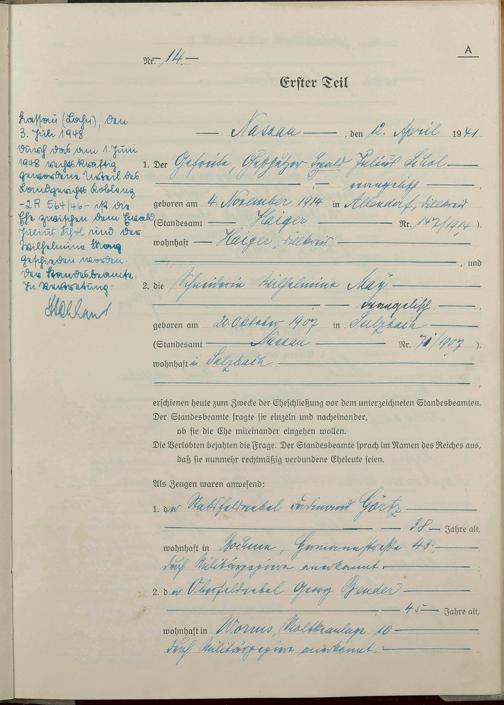 A
Nr. 14
Erster Teil
Nassau (Lahn), den
3. Juli 1948
Durch das am 1. Juni
1948 rechtskräftig
gewordene Urteil des
Landgerichts Koblenz
- 2 R 564/46 - ist die
Ehe zwischen dem Ewald
Julius Schol und der
Wilhelmine May
geschieden worden
Der Standesbeamte:
In Vertretung:
Nassau, den 12. April 1941
1. Der Gefreite, Ewald Julius Schol
evangelisch
geboren am 4. November 1914 in Allendorf, Dillkreis
(Standesamt Haiger Nr. 147/1914).
wohnhaft Haiger, Dillkreis
, und
2. die Schneiderin Wilhelmine May
evangelisch
geboren am 20. Oktober 1907 in Sulzbach
(Standesamt Nassau Nr. 71/1907).
wohnhaft in Sulzbach
erschienen heute zum Zwecke der Eheschließung vor dem unterzeichneten Standesbeamten.
Der Standesbeamte fragte sie einzeln und nacheinander,
ob sie die Ehe miteinander eingehen wollen.
Die Verlobten bejahten die Frage. Der Standesbeamte sprach im Namen des Reiches aus,
daß sie nunmehr rechtmäßig verbundene Eheleute seien.
Als Zeugen waren anwesend:
1. der Stabsfeldwebel Ferdinand Görtz
38 Jahre alt,
wohnhaft in Bochum, Hermannstraße 43
durch Militärpapiere anerkannt.
2. der Oberfeldwebel Georg Bender
45 Jahre alt,
wohnhaft in Worms, Moltkeanlage 10
durch Militärpapiere anerkannt.